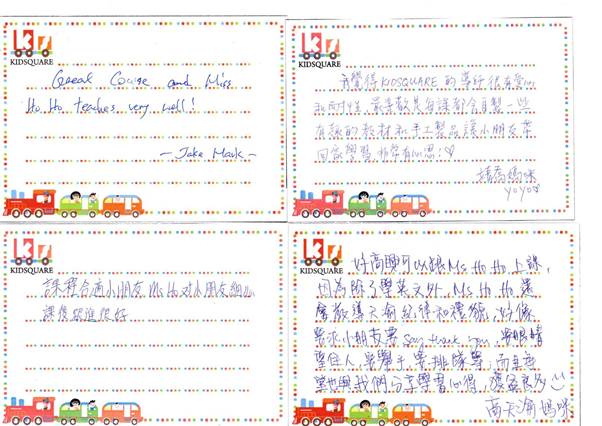 KIDSQUARE
Great Course and Miss
Ho Ho teaches very well!
- Jake Mark -
KIDSQUARE
我覺得KIDSQUARE的導師很有愛心
和耐性，最喜歡其每課都會自製一些
有趣的教材和手工製品讓小朋友帶
回家學習，非常有心思！♡
媽咪
yoyo
KIDSQUARE
課程合適小朋友 Ms Ho對小朋友細心
課後跟進很好
KIDSQUARE
好高興可以跟Ms Ho Ho上課，
因為除了學英文外，Ms Ho Ho還
教導天俞紀律和禮貌，好像
要求小朋友要say thank you，要眼睛
望住人，要舉手，要排隊等，而且
與我們分享學習心得，獲益良多
高天俞媽咪